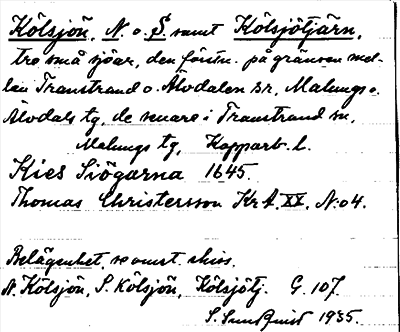 Kölsjön, N. o. S. samt Kölsjötjärn,
tre små sjöar, den förstn. på gränsen mel-
lan Transtrand o. Älvdalen sr, Malungs o.
Älvdals tg, de senare i Transtrand sn,
Malungs tg, Kopparb. l.
Kies Siögarna 1645.
Thomas Christersson KrA. XX. N:o 4.
Belägenhet, se omst. skiss.
N. Kölsjön, S. Kölsjön, Kölsjötj. G. 107.
S. Sundquist 1935.